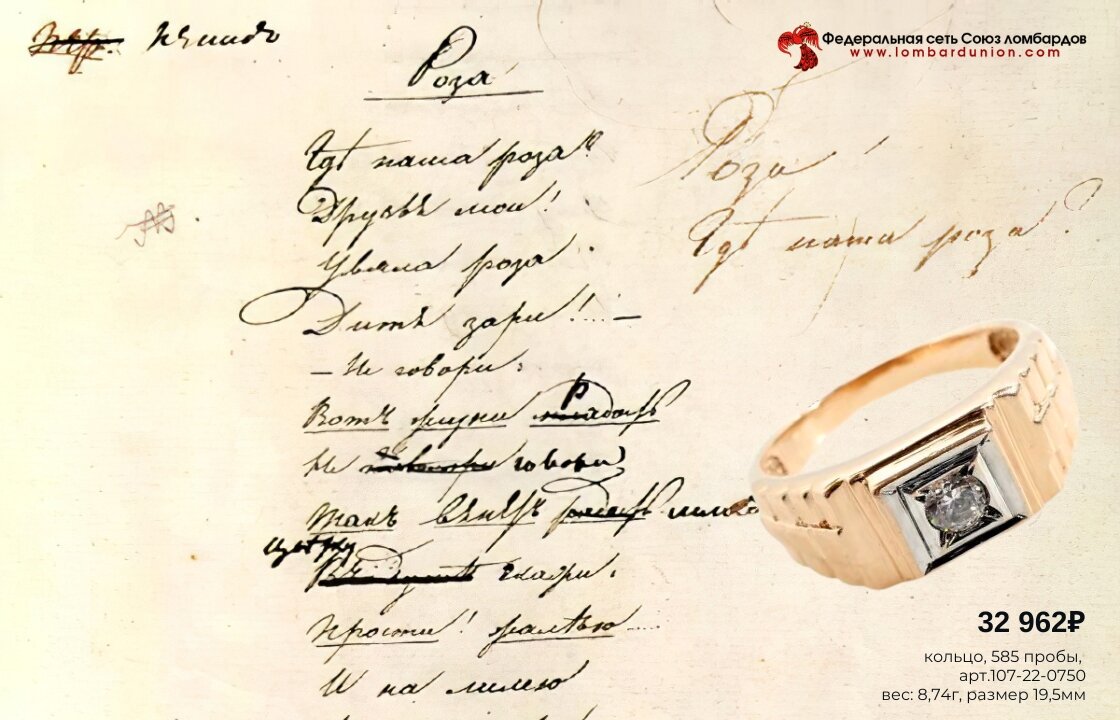 Федеральная сеть Союз ломбардов
www.lombardunion.com
Роза
Гдѣ наша роза?
Друзья мои!
Увяла роза
Дитя зари!
— Не говори:
Вотъ жизни младость
Не говори
Такъ вянетъ радость
цвѣтку скажи:
Прости! жалѣю
И на лилею
Роза
Гдѣ наша роза?
32 962₽
кольцо, 585 пробы,
арт.107-22-0750
вес: 8,74г, размер 19,5мм